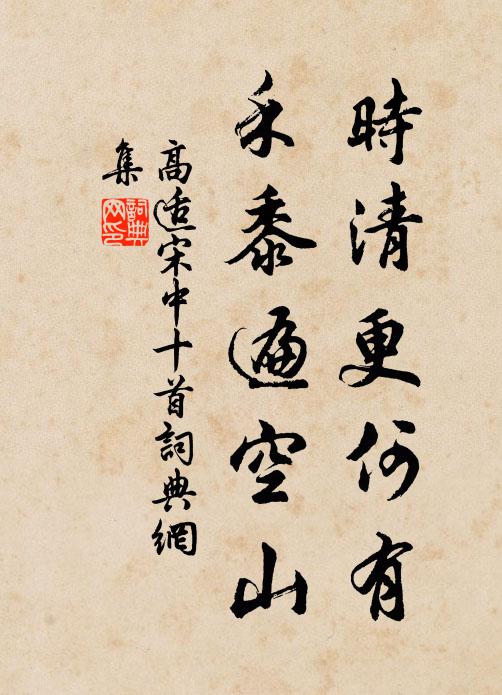 時清更何有
禾黍遍空山
高適宋中十首詞典網
集
詞典
网印